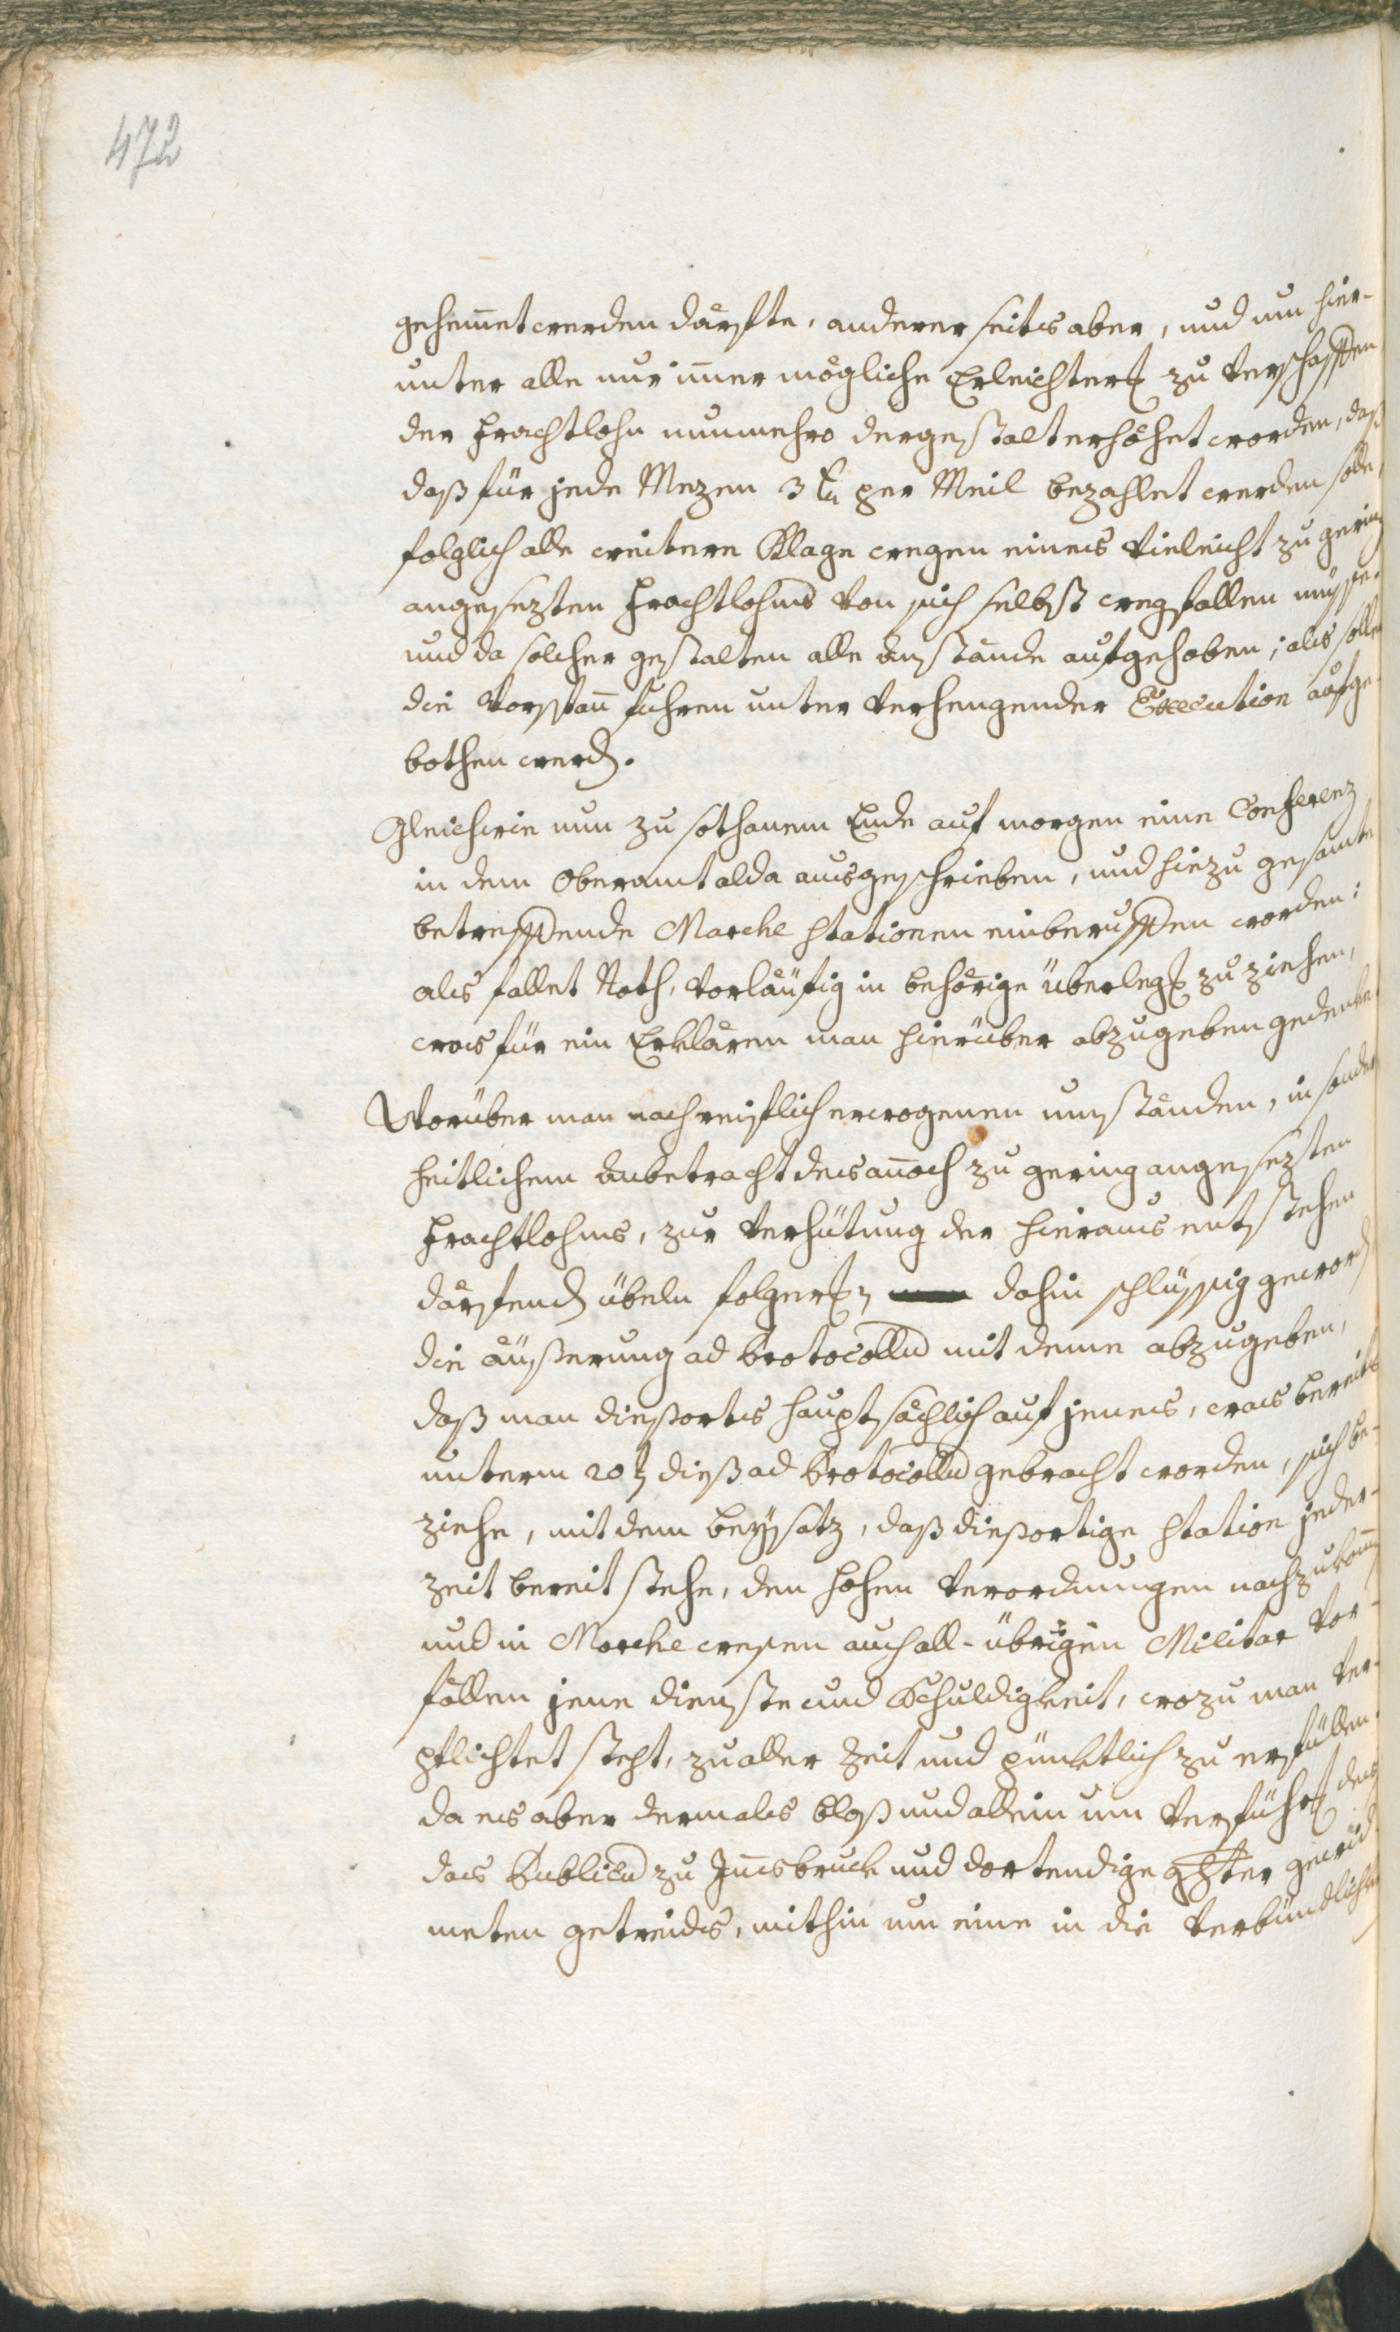 472
gehemmet werden därfte, anderer seits aber, und um hier-
unter alle nur immer mögliche Erleichterung zu verschaffen
der Frachtlohn nunmehro dergestalt erhöhet worden, daß
daß für jede Mezen 3 kr per Meil bezahlet werden solle,
folglich alle weitere Klage wegen eines vieleicht zu gering
angesezten Frachtlohns von sich selbst wegfallen müsse.
und da solcher gestalten alle Anstände aufgehoben; als solle
die Vorspann fuhren unter verhengender Execution aufge-
bothen werden.
Gleichwie nun zu sothanem Ende auf morgen eine Conferenz
in dem Oberamt alda ausgeschrieben, und hiezu gesamte
betreffende Marche stationen einberuffen worden:
als fallet Noth, vorläufig in behörige überlegung zu ziehen,
was für ein Erklären man hierüber abzugeben gedenke.
Worüber man nach reiflich erwogenen umständen, in sonder
heitlichem Anbetracht des annoch zu gering angesezten
Frachtlohns, zur Verhütung der hieraus entstehen
därfenden übeln folgerungen dahin schlüssig geworden
die äußerung ad Protocollum mit deme abzugeben,
daß man diesorts hauptsächlich auf jenes, was bereits
unterm 20ten dieß ad Protocollum gebracht worden, sich be-
ziehe, mit dem beysatz, daß diesortige station jeder-
zeit bereit stehe, den hohen Verordnungen nachzukommen
und in Marche wesen auch all-übrigen Militar Vor-
fällen jene dienste und Schuldigkeit, wozu man ver-
pflichtet steht, zu aller Zeit und pünktlich zu erfüllen.
da es aber dermals blos und allein um Verführung des
das Publicum zu Innsbruck und dortendige gewid-
meten getreides, mithin um eine in die Verbündlichkeit